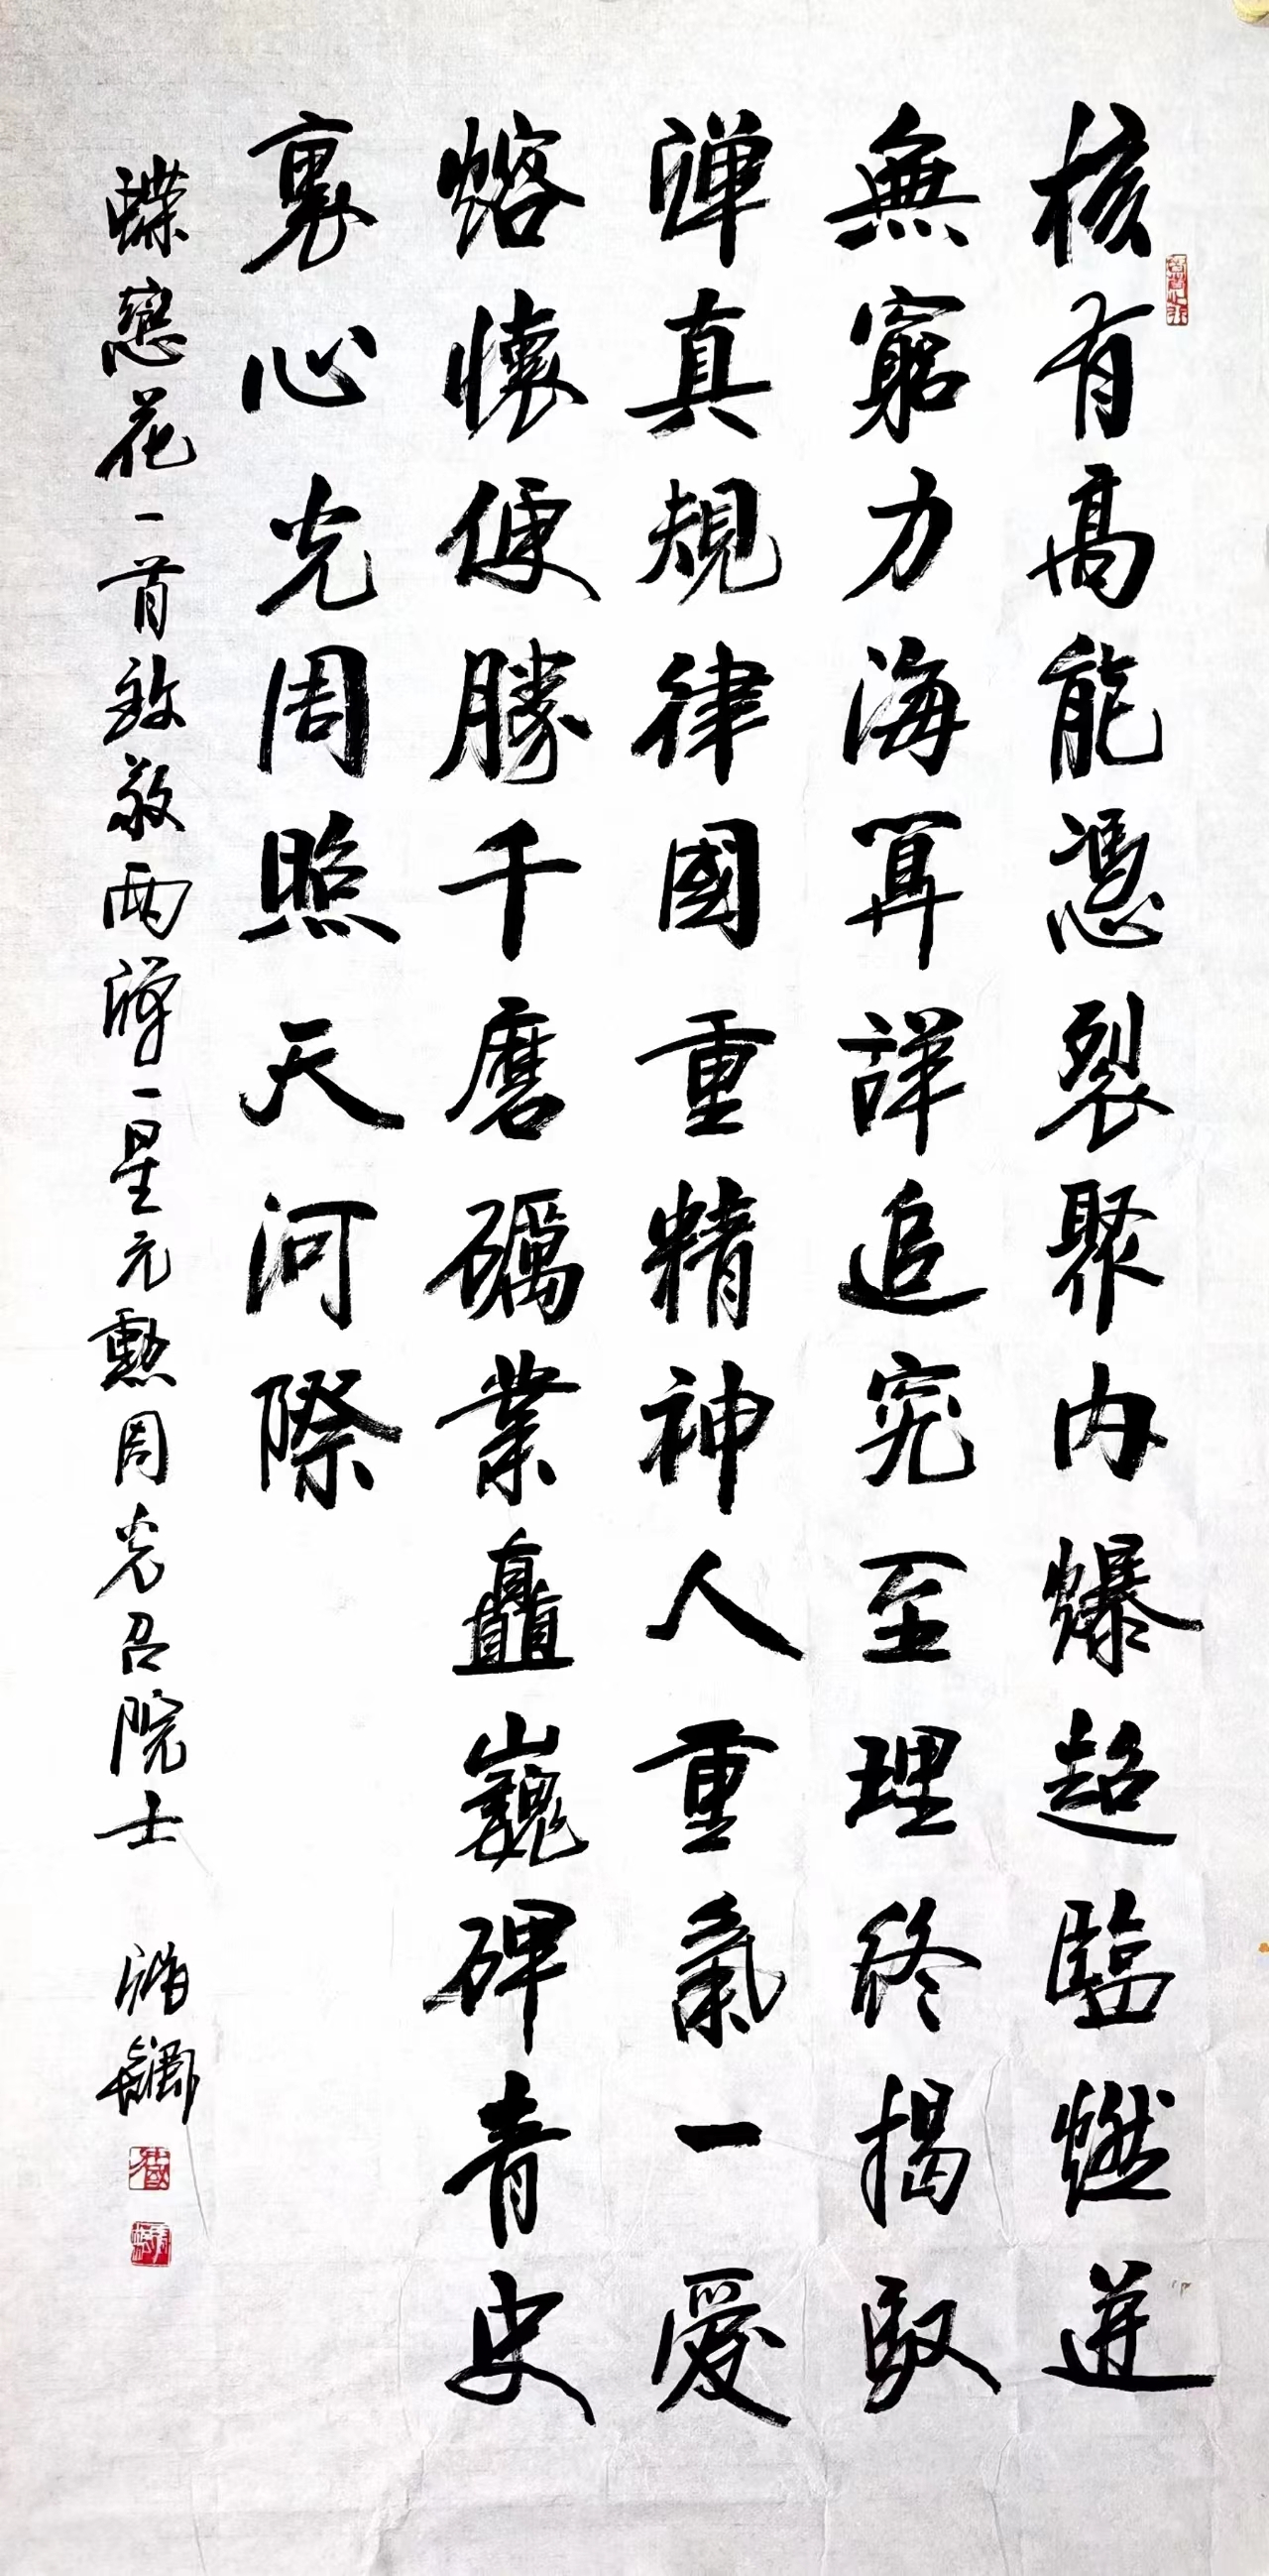 核有高能憑裂聚内爆超臨燃迸
無窮力海算詳追究至理終揭馭
彈真規律國重精神人重氣一愛
熔懷便勝千磨礪業矗巍碑青史
裏心光周照天河際
蝶戀花一首致敬兩彈一星元勲周光召院士